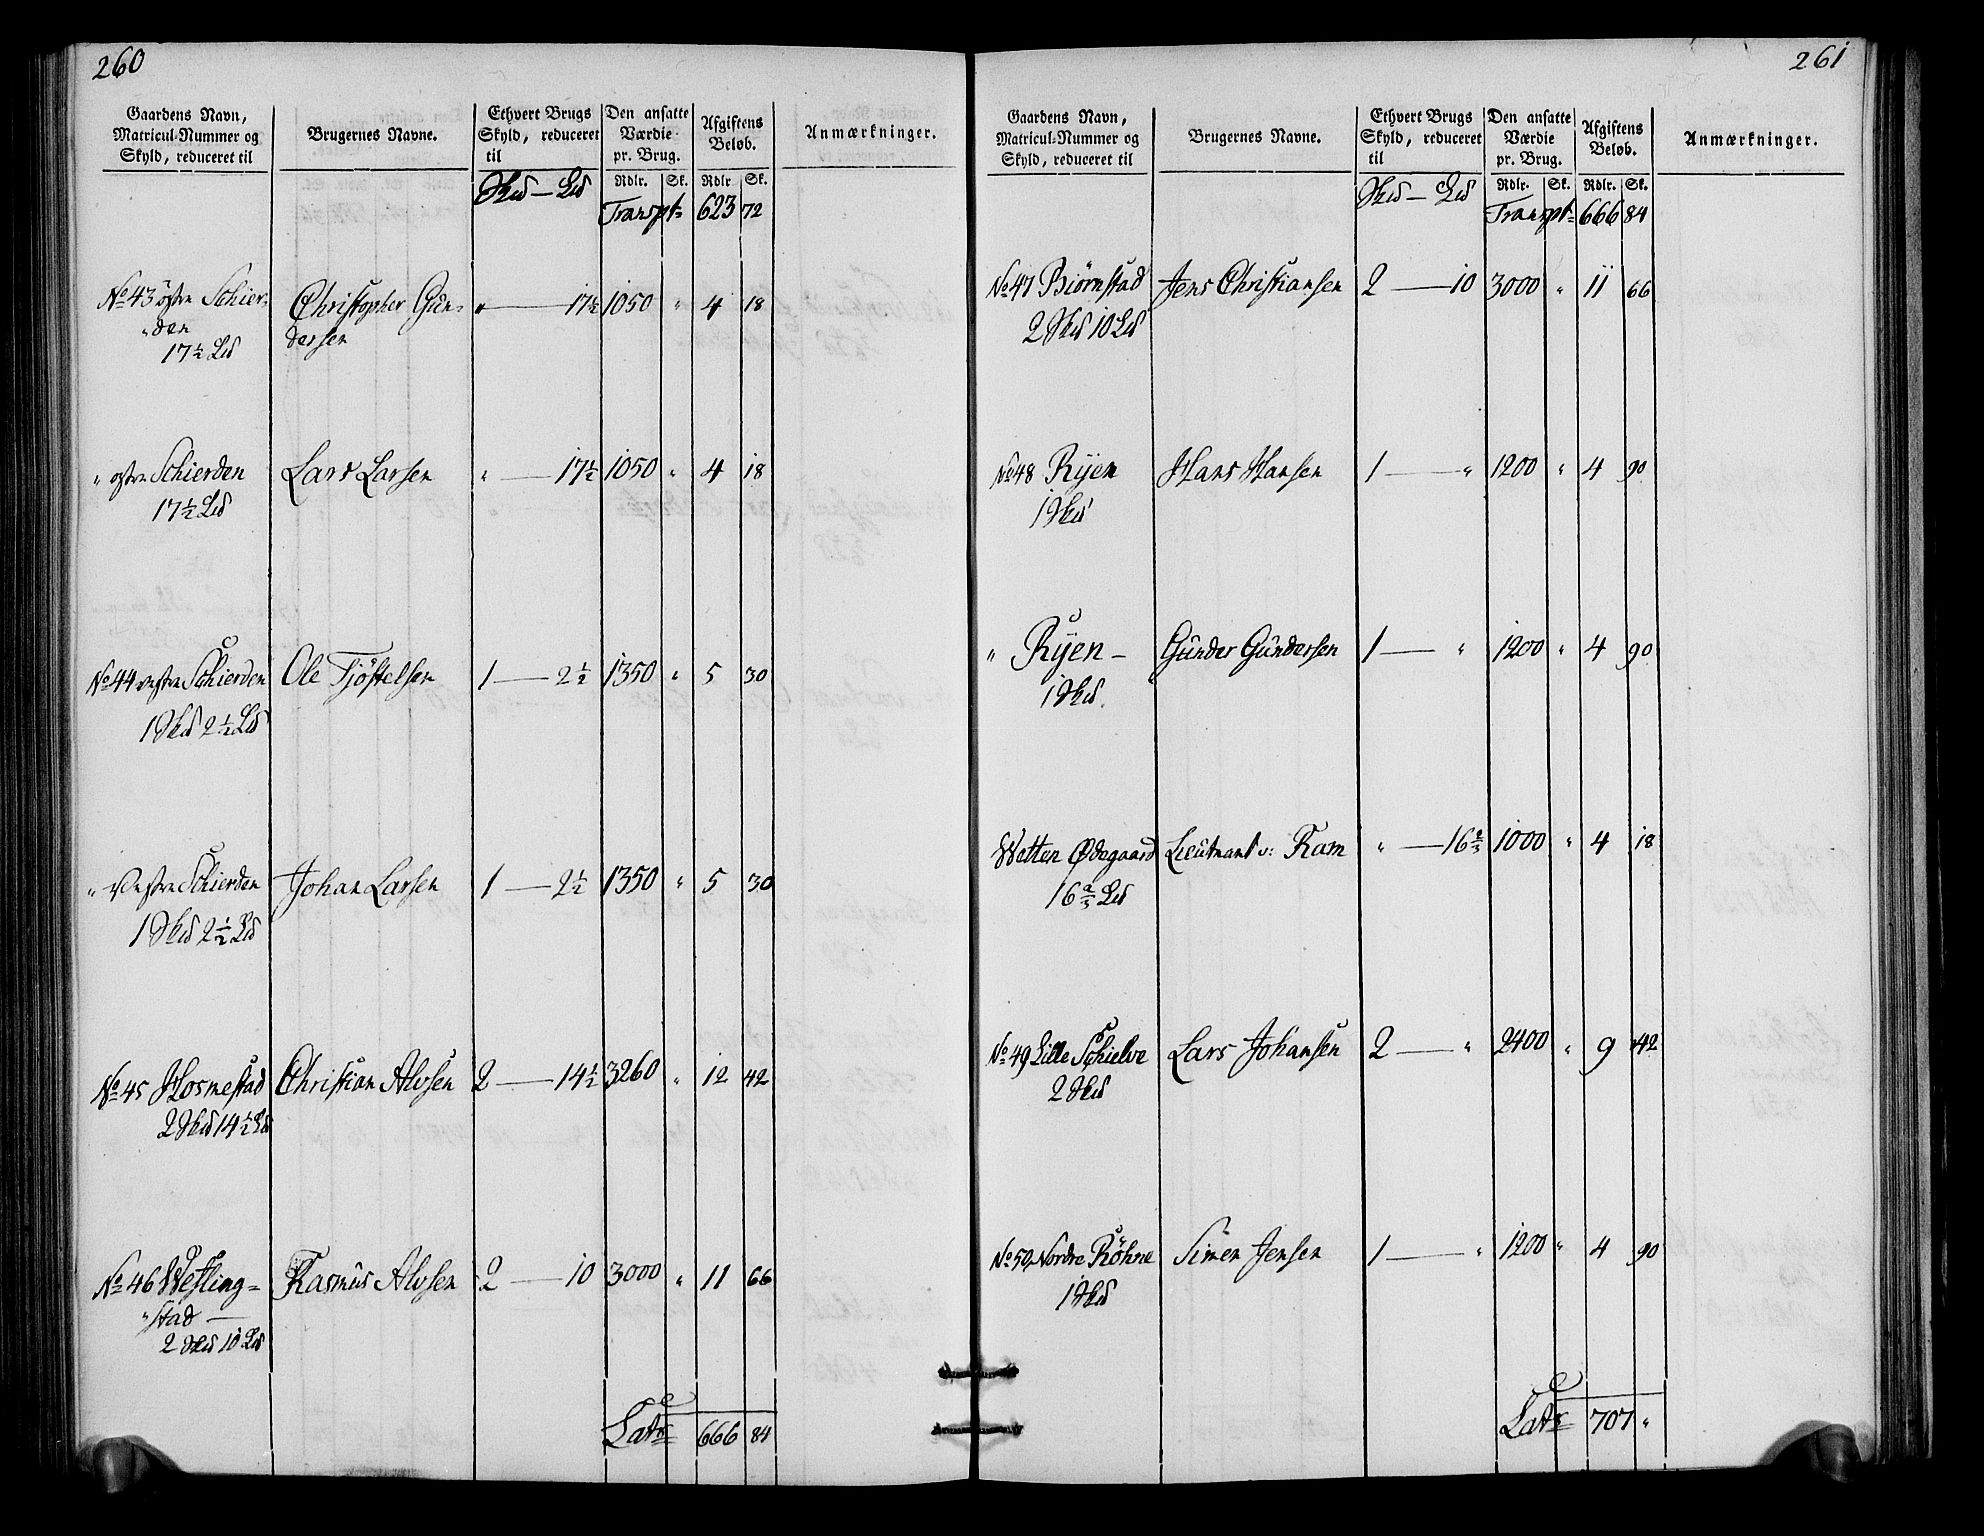 260
Gaardens Navn, Matricul-Nummer og Skyld, reduceret til | Brugernes Navne. | Ethvert Brugs Skyld, reduceret til | Den ansatte Værdie pr. Brug. | Afgiftens Beløb. | Anmærkninger.
Skd — Ld | Rdlr. | Sk. | Rdlr | Sk.
Transpt= 623 72
No 43 östre Schier- Christopher Gun- " — 17½ 1050 " 4 18
"den dersen
17½ Ld
" östre Schierden Lars Larsen " — 17½ 1050 " 4 18
17½ Ld
No 44 vestre Schierden Ole Tjöstelsen 1 — 2½ 1350 " 5 30
1 Skd 2½ Ld
" Vestre Schierden Johan Larsen 1 — 2½ 1350 " 5 30
1 Skd 2½ Ld
No 45 Hosmestad Christian Alvsen 2 — 14½ 3260 " 12 42
2 Skd 14½ Ld
No 46 Westling= Rasmus Alvsen 2 — 10 3000 " 11 66
"stad —
2 Skd 10 Ld
Latr 666 84
261
Gaardens Navn, Matricul-Nummer og Skyld, reduceret til | Brugernes Navne. | Ethvert Brugs Skyld, reduceret til | Den ansatte Værdie pr. Brug. | Afgiftens Beløb. | Anmærkninger.
Skd — Ld | Rdlr. | Sk. | Rdlr. | Sk.
Transpt= 666 84
No 47 Biörnstad Jens Christiansen 2 — 10 3000 " 11 66
2 Skd 10 Ld
No 48 Ryen Hans Hansen 1 — " 1200 " 4 90
1 Skd
" Ryen — Gunder Gundersen 1 — " 1200 " 4 90
1 Skd.
Wetten Ødegaard Lieutnant v: Ram " — 16⅔ 1000 " 4 18
16⅔ Ld
No 49 Lille Schielve Lars Johansen 2 — " 2400 " 9 42
2 Skd
No 50 Nordre Röhne Simen Jensen 1 — " 1200 " 4 90
1 Skd
Latr 707 "